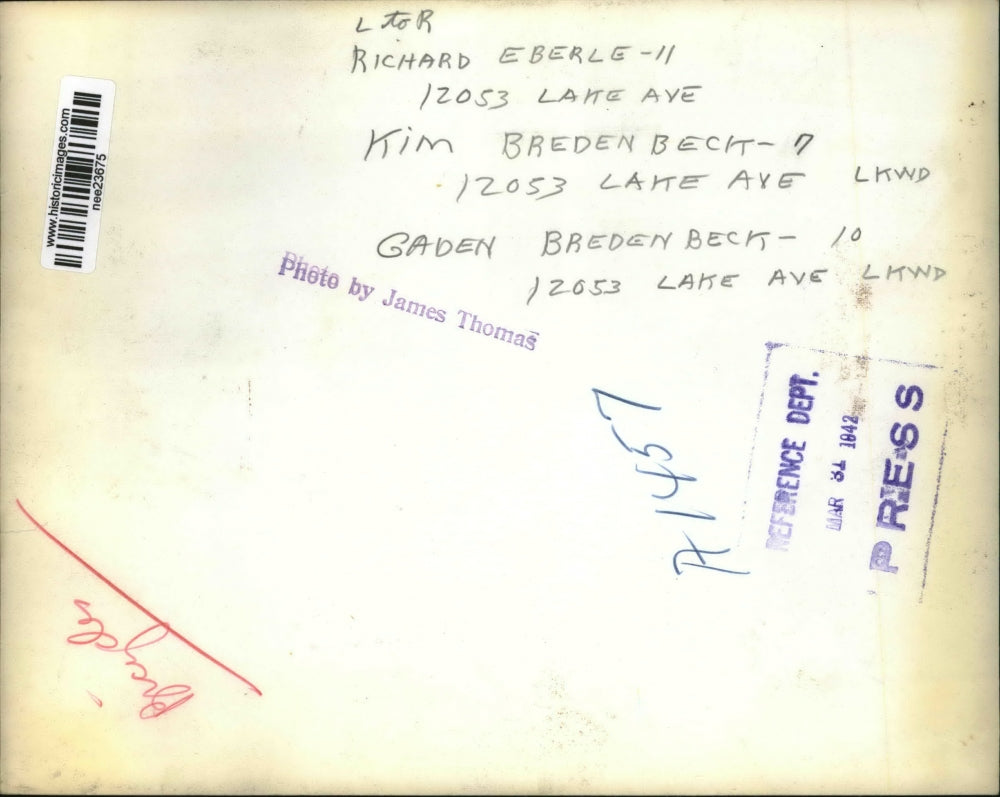 L to R
RICHARD EBERLE-11
12053 LAKE AVE
Kim BREDENBECK-7
12053 LAKE AVE LKWD
GADEN BREDENBECK-10
12053 LAKE AVE LKWD
www.historicimages.com
nee23675
Photo by James Thomas
71457
REFERENCE DEPT.
MAR 31 1942
PRESS
Bicycles